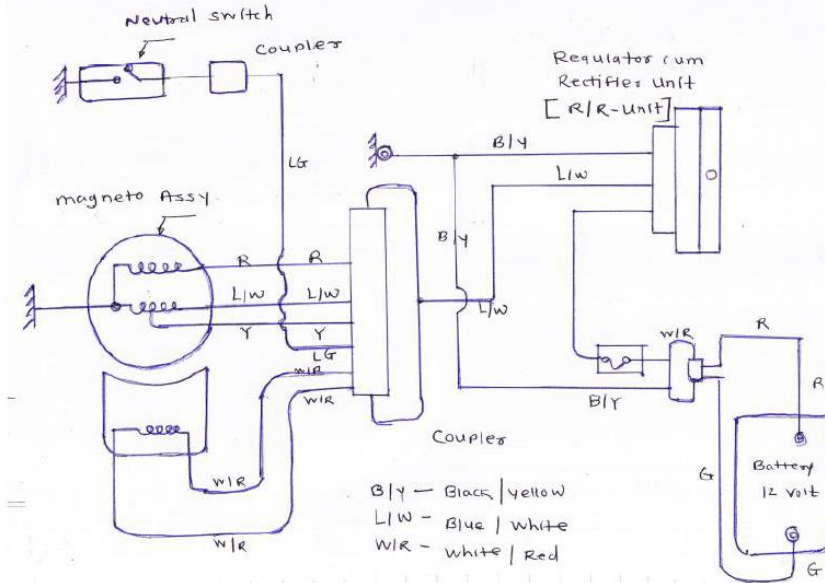 Neutral switch
Coupler
Regulator cum
Rectifier Unit
[R/R-Unit]
B/Y
L/W
LG
magneto Assy
B/Y
R R
L/W L/W
L/W
Y Y
LG
W/R
W/R
W/R
R
R
B/Y
Coupler
W/R
W/R
G
Battery
12 volt
G
B/Y - Black/yellow
L/W - Blue/white
W/R - white/Red